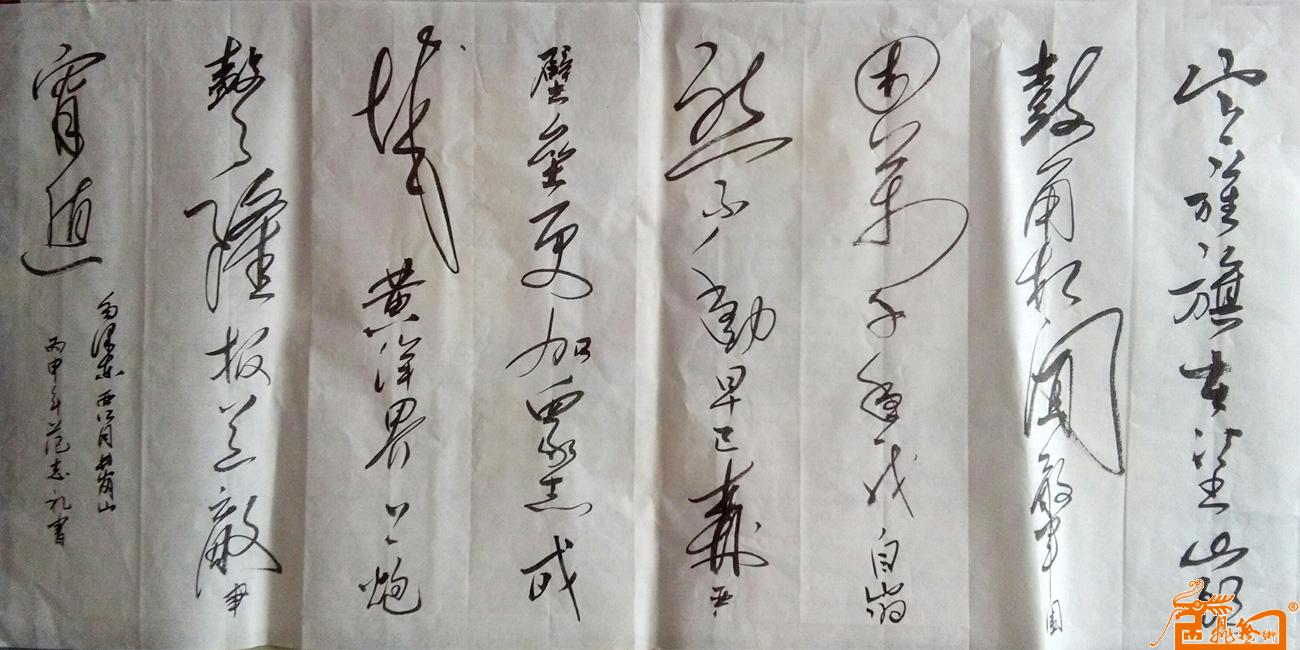 山下旌旗在望山头
鼓角相闻敌军围
困万千重我自岿
然不动早已森严
壁垒更加众志成
城黄洋界上炮
声隆报道敌军
宵遁
毛泽东西江月井冈山
丙申年范志礼书